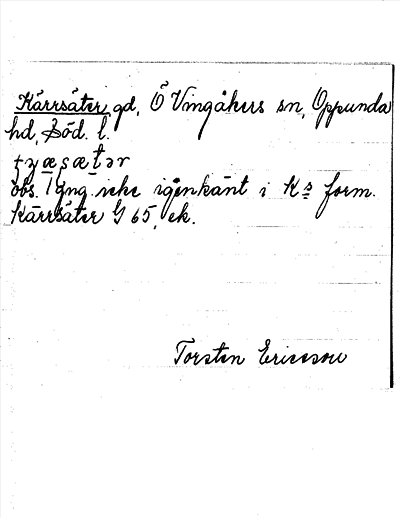 Kärrsäter gd, Ö Vingåkers sn, Oppunda
hd, Söd. l.
obs. icke igenkänt i K:s form.
Kärrsäter G 65, ek.
Torsten Ericsson